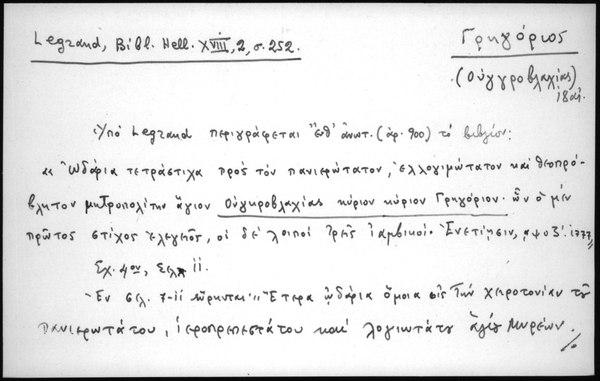 Legrand, Bibl. Hell. XVIII, 2, σ. 252.
Γρηγόριος
(Οὑγγροβλαχίας)
18 αἰ.
Ὑπὸ Legrand περιγράφεται ἔνθ' ἀνωτ. (ἀρ. 900) τὸ βιβλίον:
« Ὠδάρια τετράστιχα πρὸς τὸν πανιερώτατον, ἐλλογιμώτατον καὶ θεοπρό-
βλητον μητροπολίτην ἅγιον Οὐγκροβλαχίας κύριον κύριον Γρηγόριον· ὧν ὁ μὲν
πρῶτος στίχος ἐλεγεῖος, οἱ δὲ λοιποὶ τρεῖς ἰαμβικοί. Ἐνετίῃσιν, αψοζ'. 1777»
Σχ. 4ον, σελ. 11.
Ἐν σελ. 7-11 εὕρηνται: «Ἕτερα ᾠδάρια ὅμοια εἰς τὴν χειροτονίαν τοῦ
πανιερωτάτου, ἱεροπρεπεστάτου καὶ λογιωτάτου ἁγίου Μυρέων.